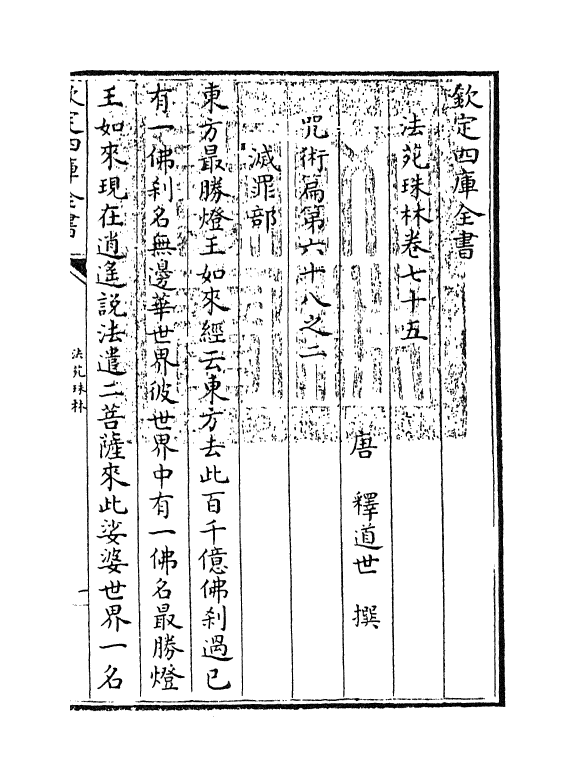 欽定四庫全書
法苑珠林卷七十五
唐　釋道世　撰
咒術篇第六十八之二
滅罪部
東方最勝燈王如來經云東方去此百千億佛刹過已
有一佛刹名無邊華世界彼世界中有一佛名最勝燈
王如來現在逍遙說法遣二菩薩來此娑婆世界一名
欽定四庫全書
法苑珠林
一